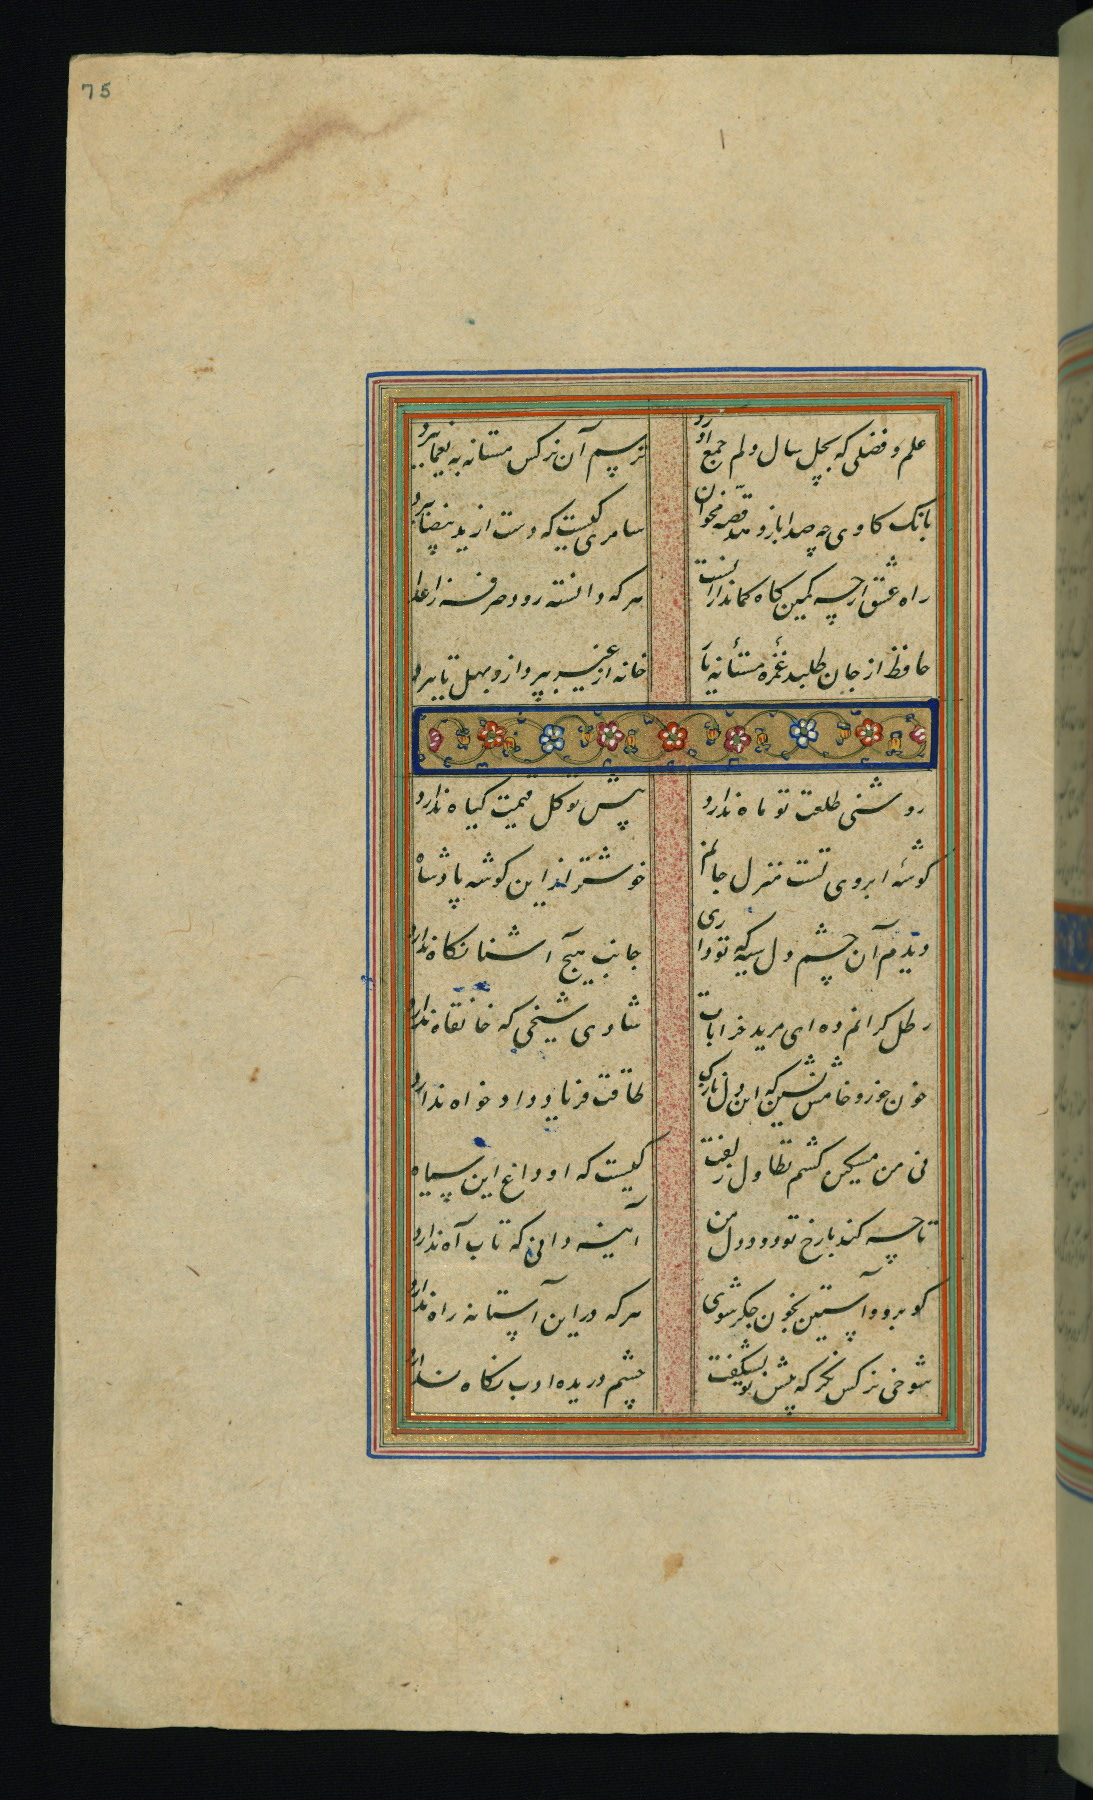 75
علم و فضلی که بچل سال دلم جمع آورد
ترسم آن نرکس مستانه به یغما ببرد
بانک کاوی چه صدا باز دهد قصه مخوان
سامری کیست که دست از ید بیضا ببرد
راه عشق ارچه کمین کاه کماندارانست
هر که دانسته رود صرفه ز اعدا
حافظ ار جان طلبد غمزه مستانه یار
خانه از غیر بپرداز و بهل تا ببرد
روشنی طلعت تو ماه ندارد
پیش تو کل قیمت کیاه ندارد
کوشهٔ ابروی تست منزل جانم
خوشتر از این کوشه پادشاه
دیدم آن چشم دل سیه که تو داری
جانب هیچ اشنا نکاه ندارد
رطل کرانم ده ای مرید خرابات
شادی شیخی که خانقاه ندارد
خون خور و خامش نشین که این دل نازک
طاقت فریاد دادخواه ندارد
نی من مسکین کشم تطاول زلفت
کیست که او داغ این سیاه
تا چه کند با رخ تو دود دل من
آینه دانی که تاب آه ندارد
کو برو و آستین بخون جکر شوی
هر که در این آستانه راه ندارد
شوخی نرکس نکر که پیش تو بشکفت
چشم دریده ادب نکاه ندارد